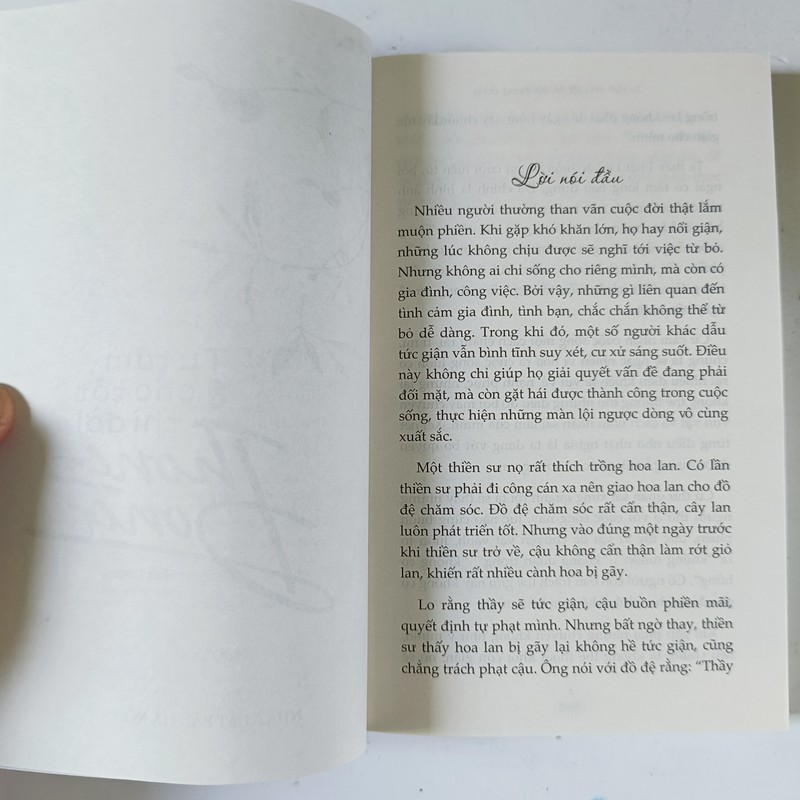 Lời nói đầu
Nhiều người thường than vãn cuộc đời thật lắm
muộn phiền. Khi gặp khó khăn lớn, họ hay nổi giận,
những lúc không chịu được sẽ nghĩ tới việc từ bỏ.
Nhưng không ai chỉ sống cho riêng mình, mà còn có
gia đình, công việc. Bởi vậy, những gì liên quan đến
tình cảm gia đình, tình bạn, chắc chắn không thể từ
bỏ dễ dàng. Trong khi đó, một số người khác dẫu
tức giận vẫn bình tĩnh suy xét, cư xử sáng suốt. Điều
này không chỉ giúp họ giải quyết vấn đề đang phải
đối mặt, mà còn gặt hái được thành công trong cuộc
sống, thực hiện những màn lội ngược dòng vô cùng
xuất sắc.
Một thiền sư nọ rất thích trồng hoa lan. Có lần
thiền sư phải đi công cán xa nên giao hoa lan cho đồ
đệ chăm sóc. Đồ đệ chăm sóc rất cẩn thận, cây lan
luôn phát triển tốt. Nhưng vào đúng một ngày trước
khi thiền sư trở về, cậu không cẩn thận làm rớt giỏ
lan, khiến rất nhiều cành hoa bị gãy.
Lo rằng thầy sẽ tức giận, cậu buồn phiền mãi,
quyết định tự phạt mình. Nhưng bất ngờ thay, thiền
sư thấy hoa lan bị gãy lại không hề tức giận, cũng
chẳng trách phạt cậu. Ông nói với đồ đệ rằng: “Thầy